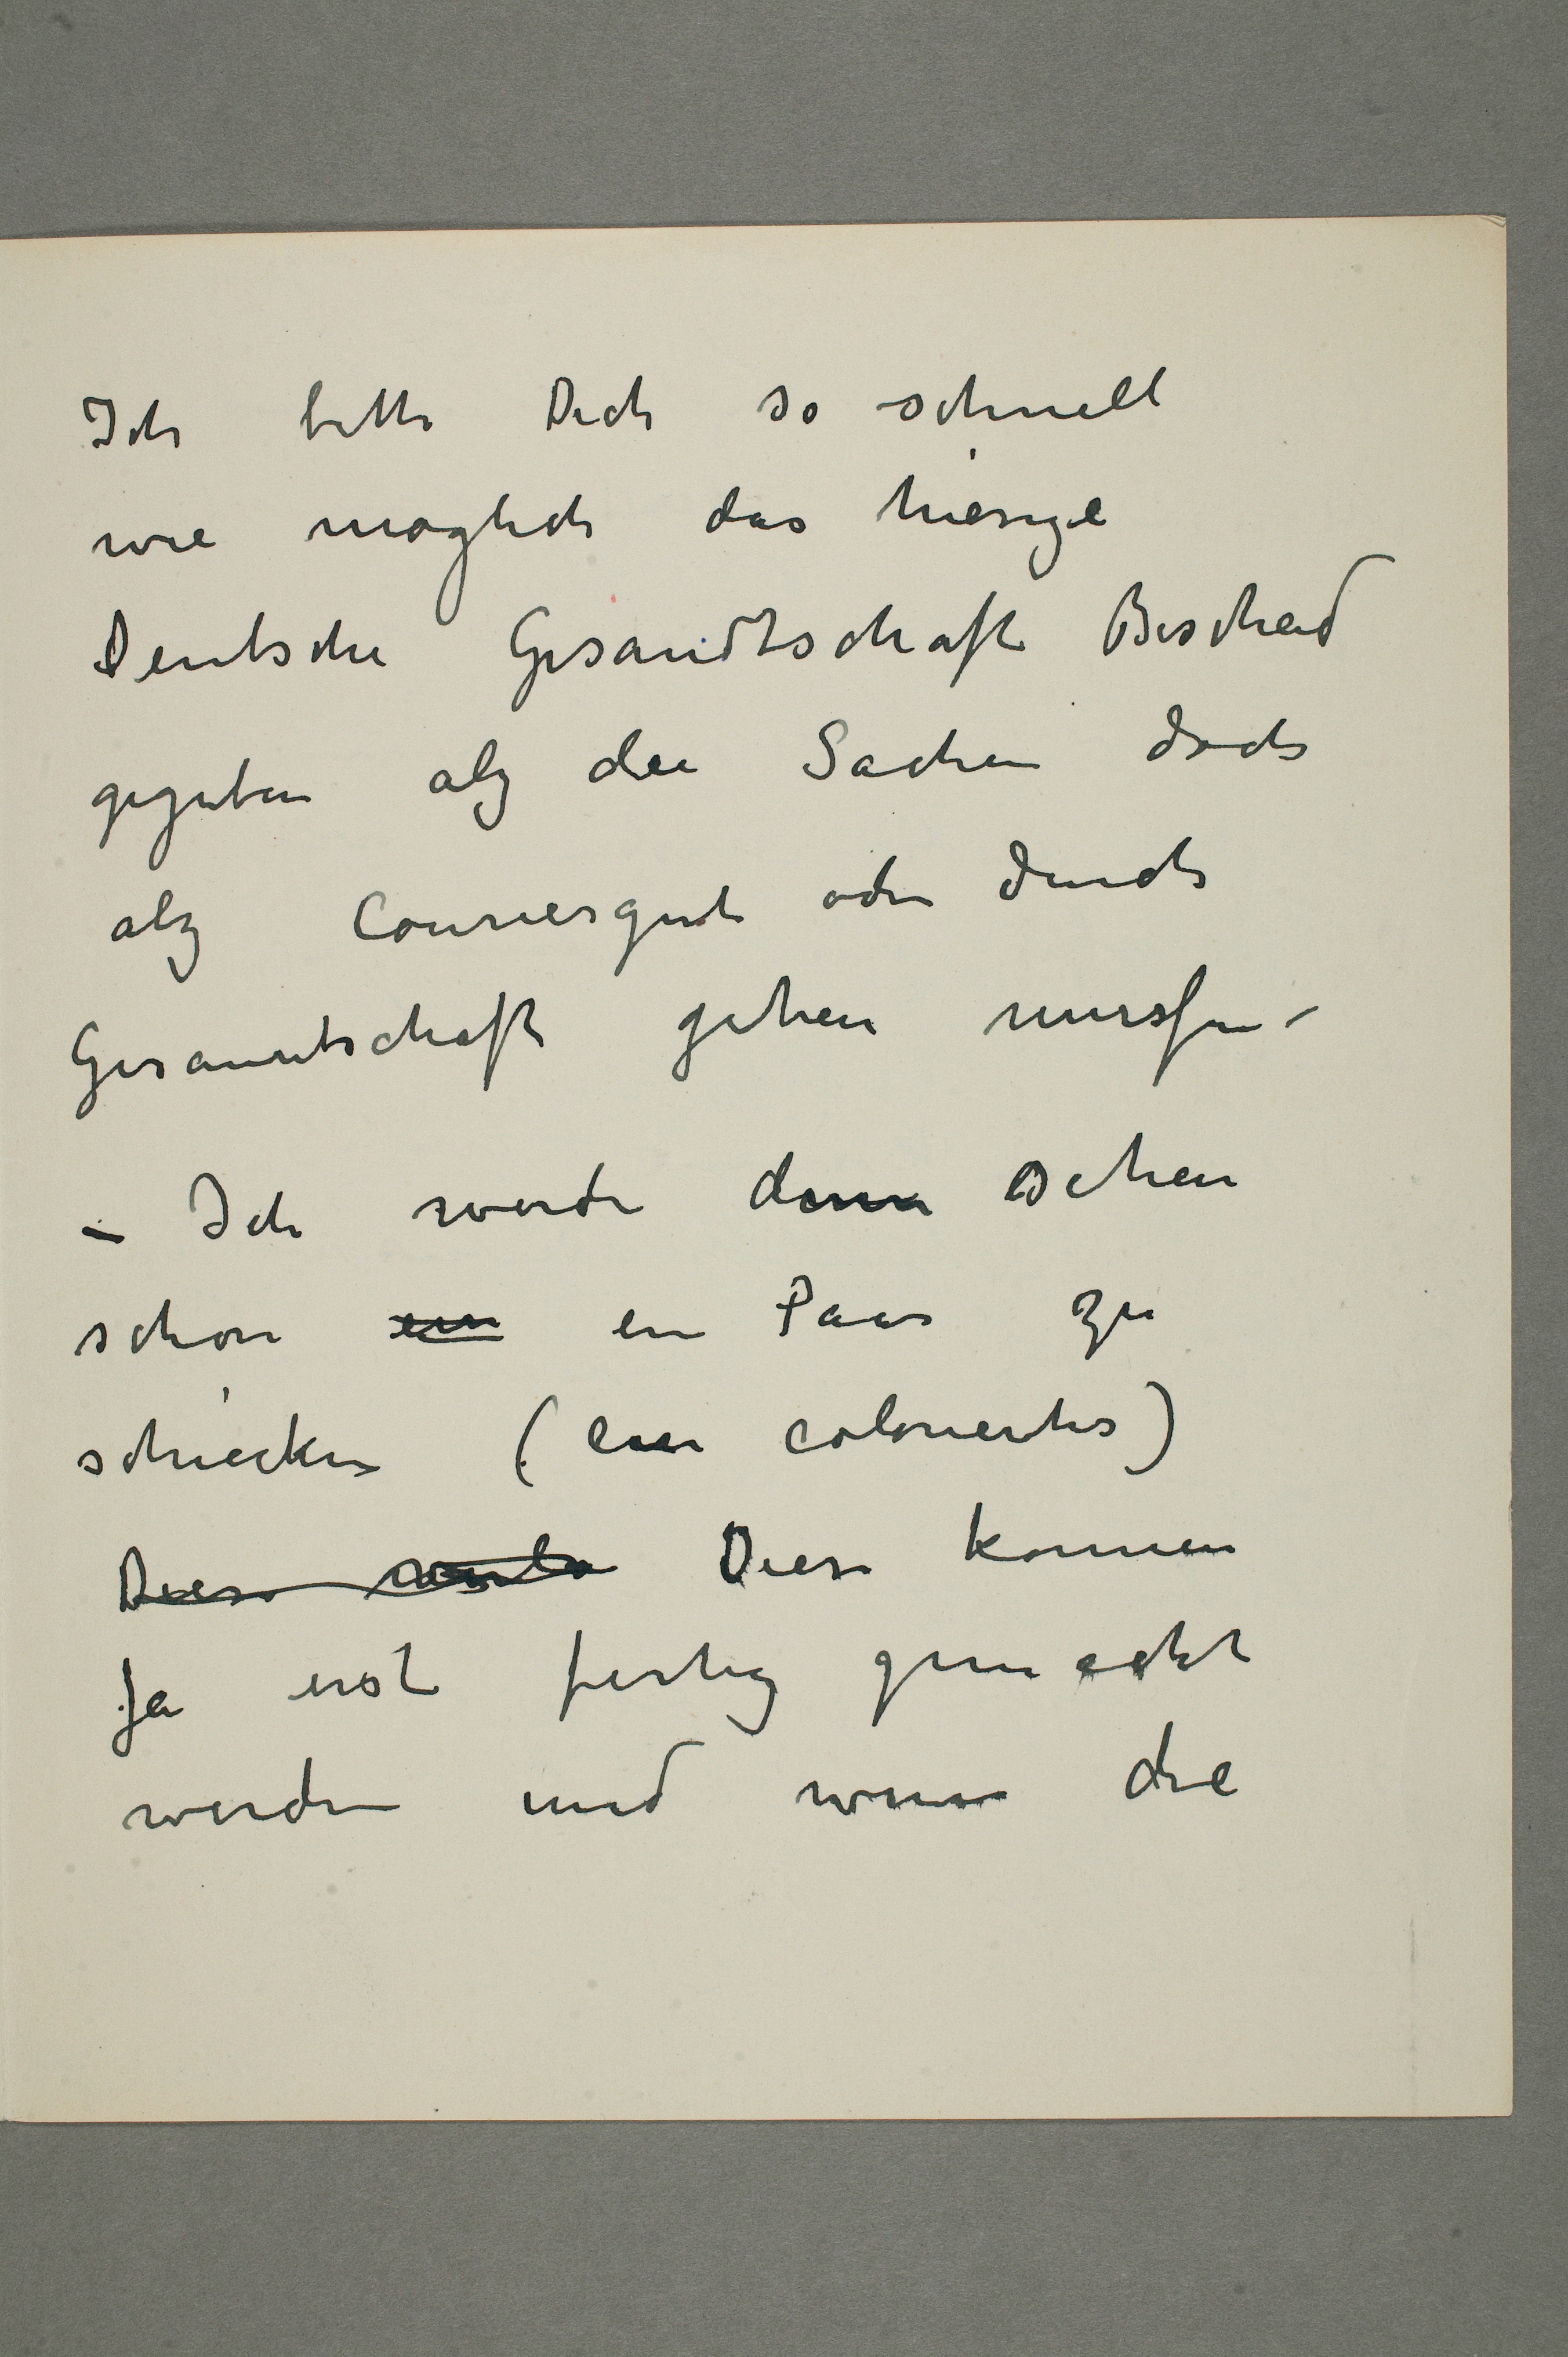 Ich bitte Dich so schnell
wie moglich das hiesige
Deutsche Gesandtschaft Bescheid
gegeben alz die Sachen doch
alz Couriergut oder durch
Gesanntschaft gehen mussen –
– Ich werde dann sehen
schon ein ein Paar zu
schiecken (ein coloriertes)
Diese Diese konnen
Ja erst fertig gemacht
werden und wenn die